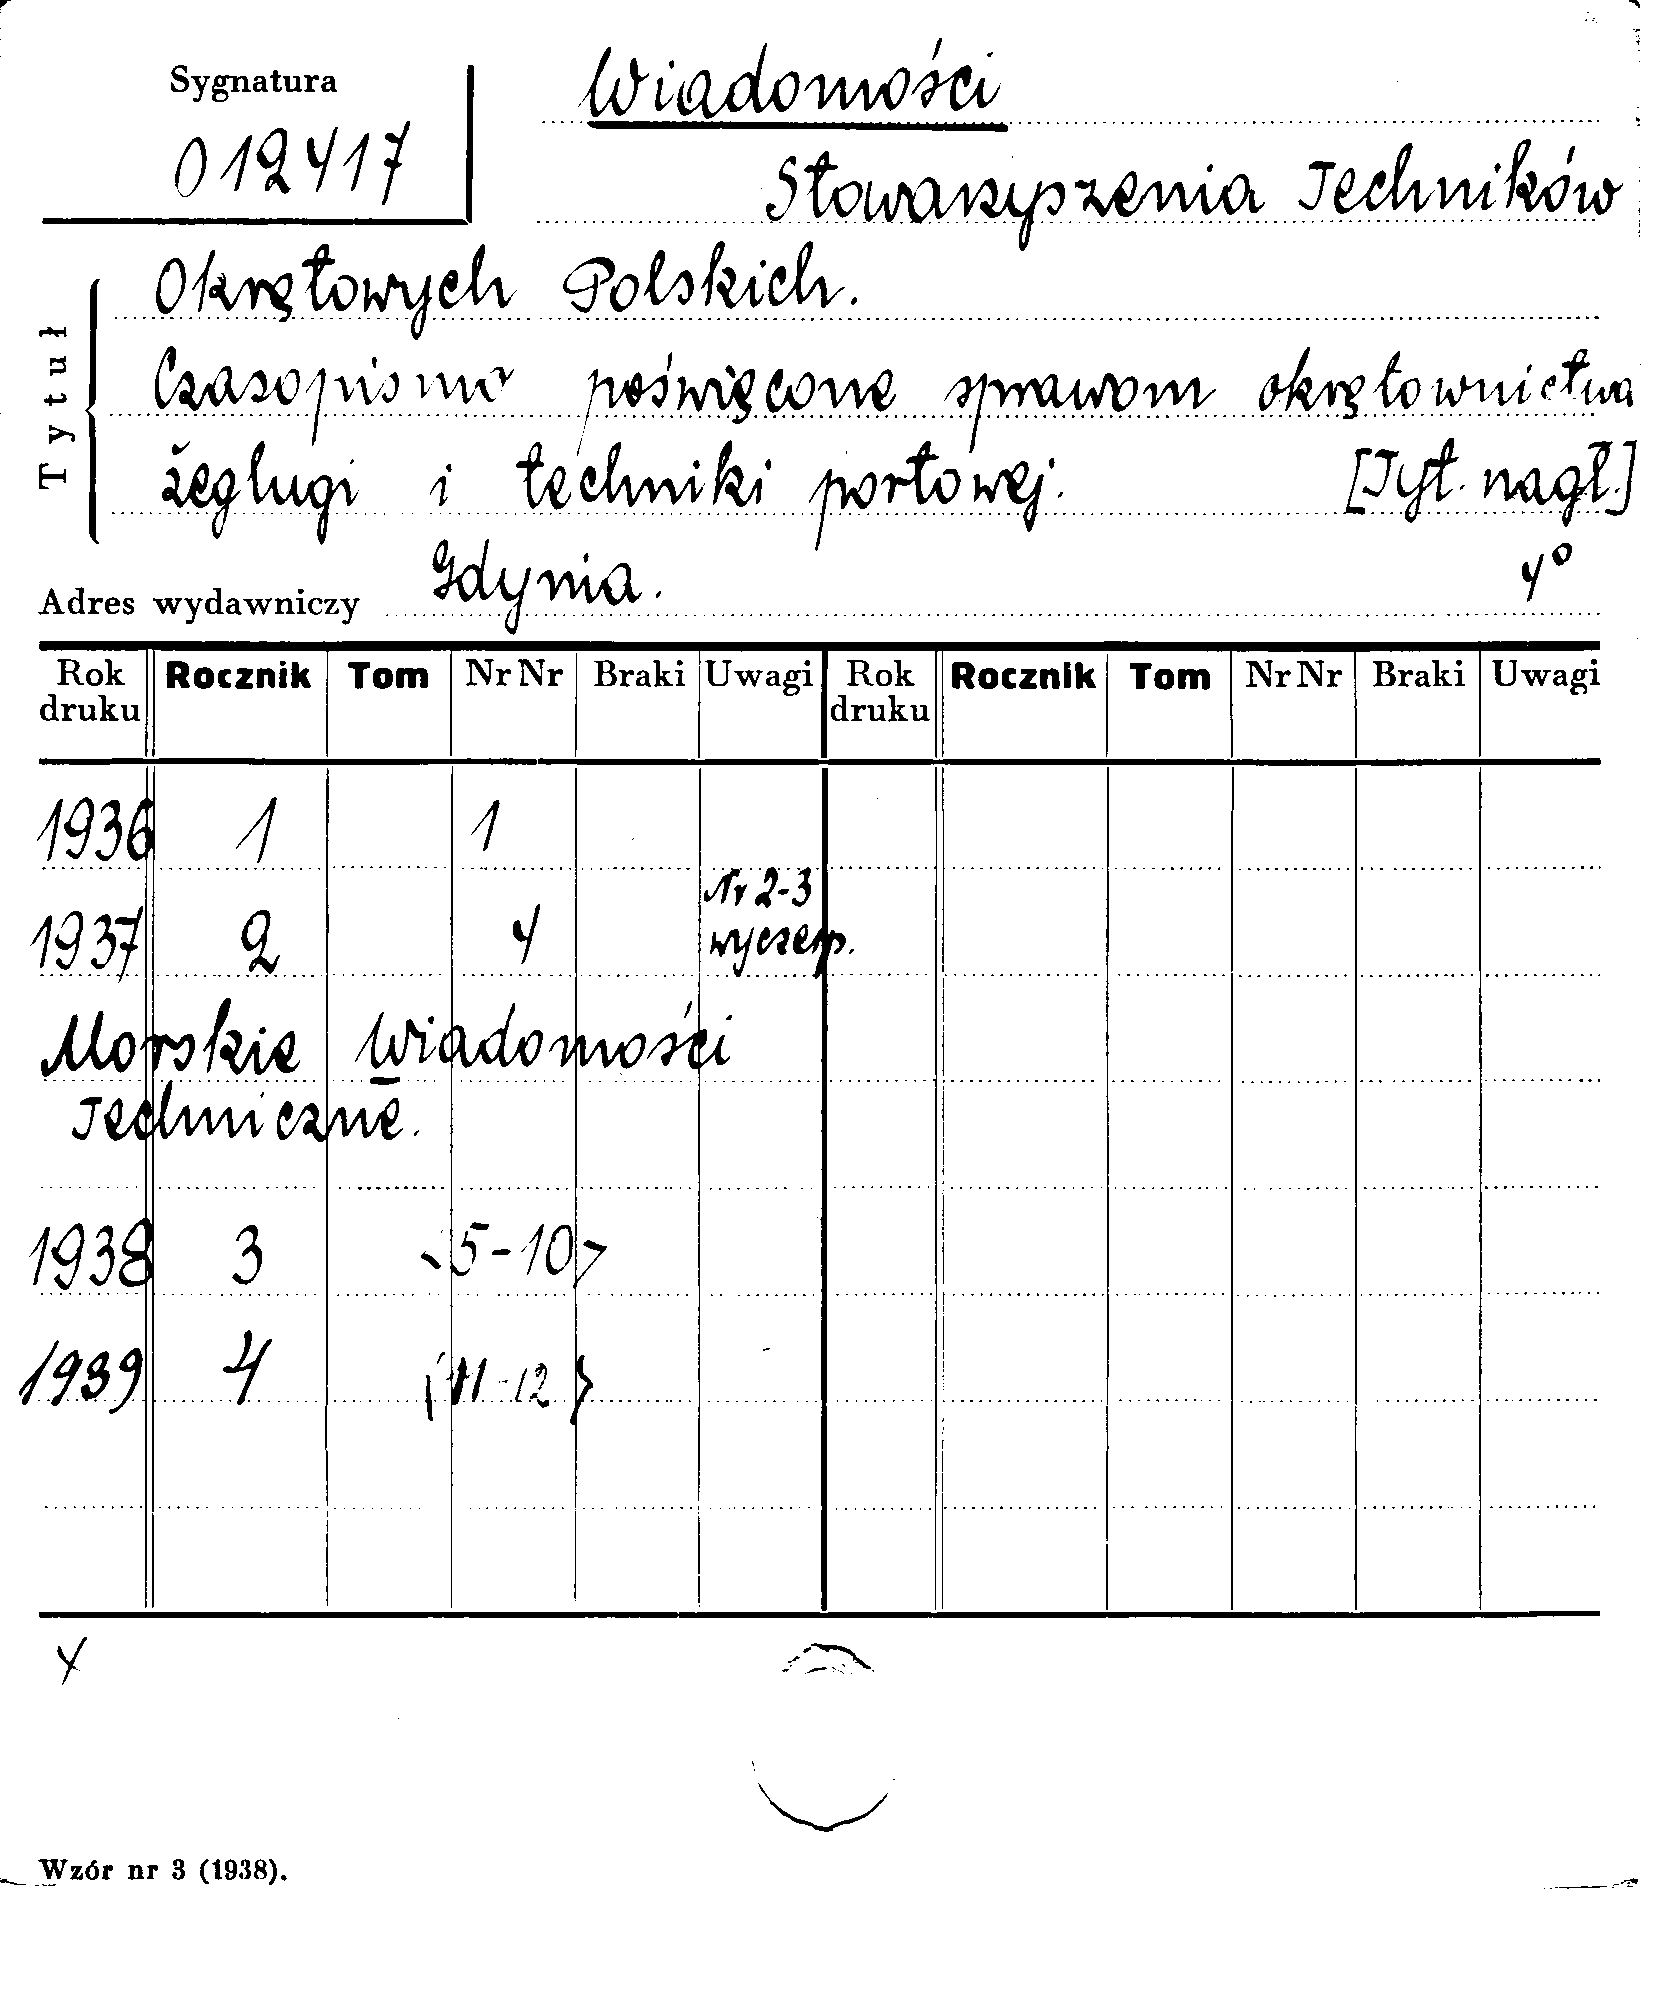 Sygnatura
012417
Wiadomości
Stowarzyszenia Techników
Okrętowych Polskich.
Tytuł
Czasopismo poświęcone sprawom okrętownictwa
żeglugi i techniki portowej. [Tyt. nagł.]
Adres wydawniczy Gdynia. 4°
Rok druku Rocznik Tom Nr Nr Braki Uwagi Rok druku Rocznik Tom Nr Nr Braki Uwagi
1936 1 1
1937 2 4 Nr 2-3 wyczerp.
Morskie Wiadomości
Techniczne.
1938 3 <5-10>
1939 4 <11-12>
x
Wzór nr 3 (1938).